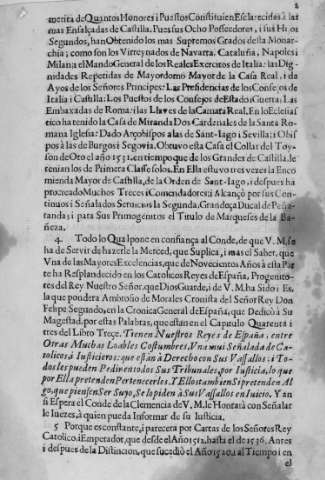 2
merita de Quantos Honores i Puestos Constituien Esclarecidas à las
mas Ensalçadas de Castilla. Pues sus Ocho Possedores, i sus Hijos
Segundos, han Obtenido los mas Supremos Grados de esta Monar-
chia; como son los Virreynados de Navarra, Cataluña, Napoles i
Milan: el Mando General de los Reales Exercitos de Italia: las Dig-
nidades Repetidas de Mayordomo Mayor de la Casa Real, i de
Ayos de los Señores Principes: Las Presidencias de los Consejos de
Italia i Castilla: Los Puestos de los Consejos de Estado i Guerra: Las
Embaxadas de Roma: i las Llaves de la Camara Real. En lo Eclesias
tico ha tenido la Casa de Miranda Dos Cardenales de la Santa Ro-
mana Iglesia: Dado Arçobispos a las de Sant-Iago i Sevilla; i Obis-
pos à las de Burgos i Segovia. Obtuvo esta Casa el Collar del Toy-
son de Oro el año 1531. en tiempo que de los Grandes de Castilla, le
tenian los de Primera Classe solos. En Ella estuvo tres vezes la Enco
mienda Mayor de Castilla, de la Orden de Sant-Iago, i despues ha
procreado Muchos Treces i Comendadores: i Alcançò por sus Con-
tinuos i Señalados Servicios la Segunda Grandeça Ducal de Peña-
randa; i para Sus Primogenitos el Titulo de Marqueses de la Ba-
ñeza.
4. Todo lo Qual pone en confiança al Conde, de que V. M. se
ha de Servir de hazerle la Merced, que Suplica, i mas el Saber, que
Vna de las Mayores Excelencias, que de Novecientos Años à esta Par
te ha Resplandecido en los Catolicos Reyes de España, Progenito-
res del Rey Nuestro Señor, que Dios Guarde, i de V. M. ha Sido i Es,
la que pondera Ambrosio de Morales Cronista del Señor Rey Don
Felipe Segundo, en la Cronica General de España, que Dedicò à Su
Magestad, por estas Palabras, que estàn en el Capitulo Quarenta i
tres del Libro Treçe. Tienen Nuestros Reyes de España, entre
Otras Muchas Loables Costumbres, Vna mui Señalada de Ca-
tolicos à Iusticieros: que estàn à Derecho con Sus Vassallos: i To-
dos les pueden Pedir en todos Sus Tribunales, por Iusticia, lo que
por Ella pretenden Pertenecerles. I Ellos tambien Si pretenden Al-
go, que piensen Ser Suyo, Se lo piden à Sus Vassallos en Iuicio. Y an
si Espera el Conde de la Clemencia de V. M. le Honrarà con Señalar
le Iuezes, à quien pueda Informar de su Iusticia.
5 Porque es constante, i parecerà por Cartas de los Señores Rey
Catolico, i Emperador, que desde el Año 1512. hasta el de 1536. Antes
i despues de la Distincion, que sucediò el Año 1520. i al Tiempo en
el